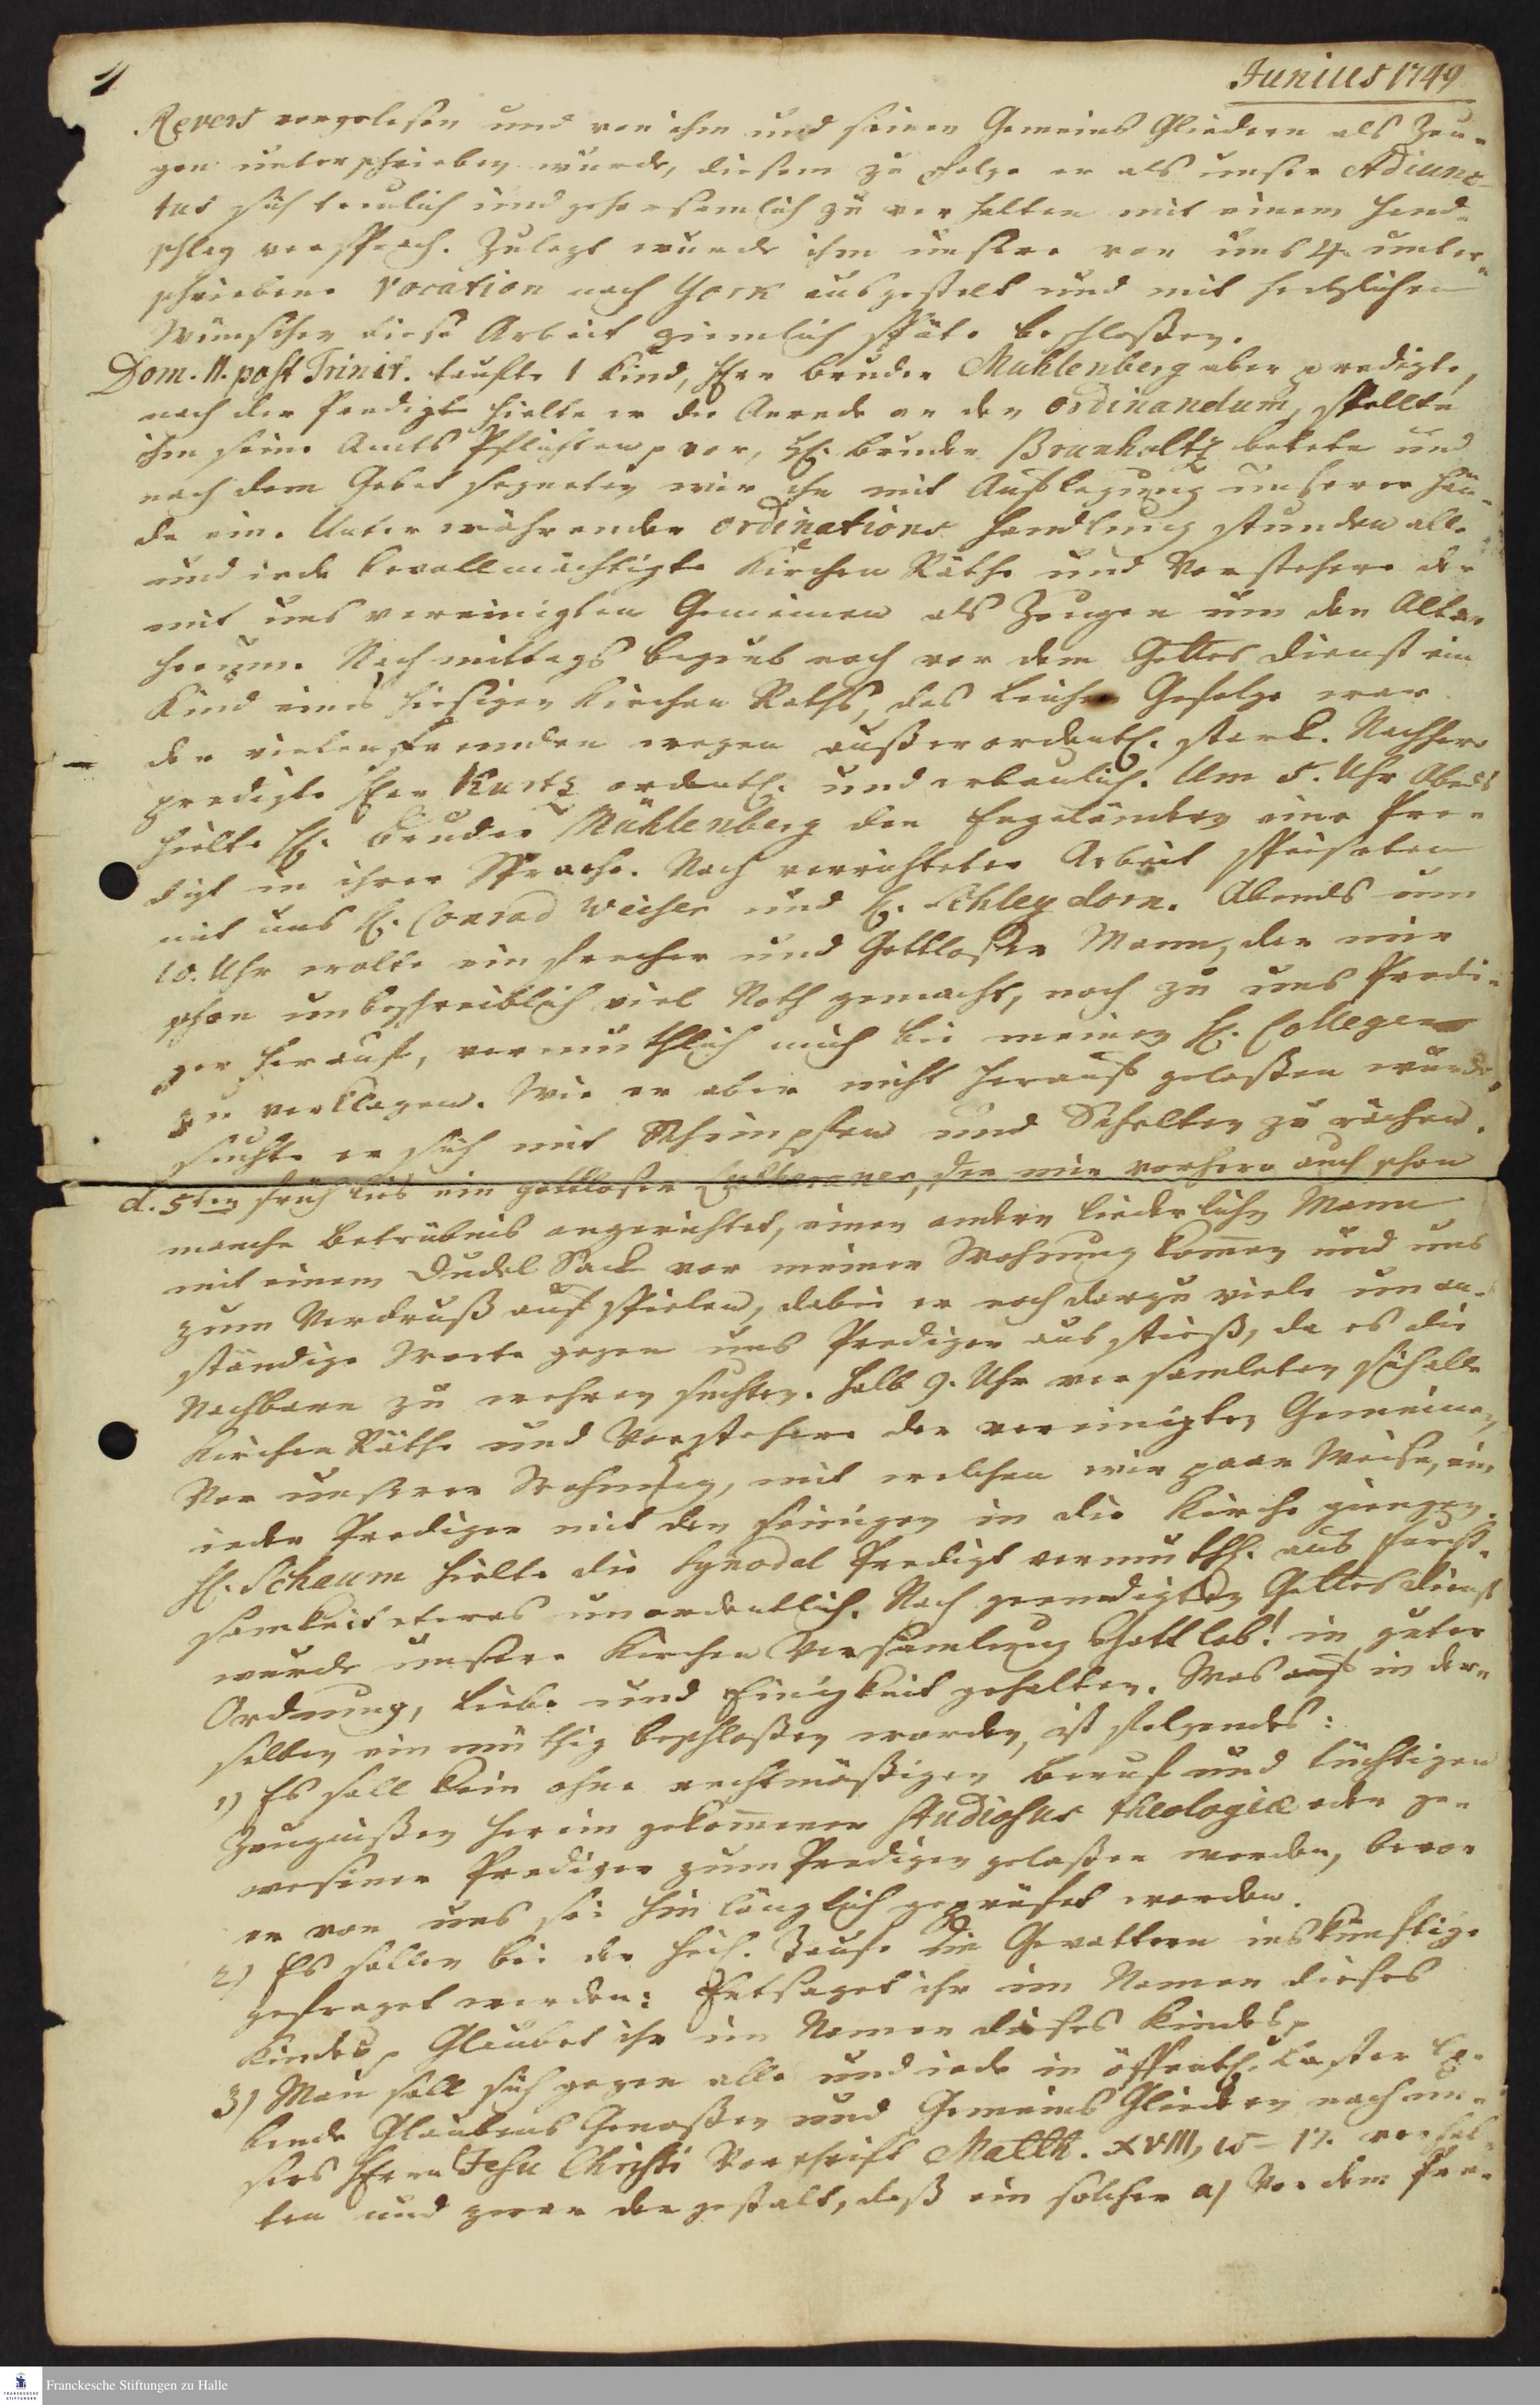 4
Junius 1749
Revers vorgelesen und von ihm und seinen Gemeins Gliedern als Zeu-
gen unterschrieben wurde, diesem zu folge er als unser Adiunc-
tus sich treulich und gehorsamlich zu verhalten mit einem Hand-
schlag versprach. Zulezt wurde ihm unsere von uns 4. unter-
schriebene Vocation nach York ausgestelt und mit herzlichen
Wünschen diese Arbeit ziemlich späte beschloßen.
Dom. II. post Trinit. taufte 1 Kind, Herr Bruder Muhlenberg aber predigte,
nach der Predigt hielte er die Anrede an den ordinandum, stellte
ihm seine Amts Pflichten p vor, H. Bruder Brunholtz betete und
nach dem Gebet segneten wir ihn mit Auflegung unserer Hän-
de ein. Unter währender ordinations Handlung stunden alle
und iede bevollmächtigte Kirchen Räthe und Vorstehere der
mit uns vereinigten Gemeinen als Zeugen um den Altar
herum. Nachmittags begrub noch vor dem Gottes dienst ein
Kind eines hiesigen Kirchen Raths, das Leichen Gefolge war
der vielen fremden wegen außerordentl. starck. Nachhero
predigte Herr Kurtz ordentl. und erbaulich. Um 5. Uhr Abends
hielte H. Bruder Mühlenberg den Engeländern eine Pre-
digt in ihrer Sprache. Nach verrichteter Arbeit speiseten
mit uns H. Conrad Weiser und H. Schleydorn. Abends um
10. Uhr wolte ein frecher und Gottloser Mann, der mir
schon unbeschreiblich viel Noth gemacht, noch zu uns Predi-
ger herauf, vermuthlich mich bei meinen H. Collegen
zu verklagen. Wie er aber nicht herauf gelaßen wurde,
suchte er sich mit Schimpfen und Schelten zu rächen.
d. 5ten früh lies ein gottloser Lutheraner, der mir vorhero auch schon
manche Betrübnis angerichtet, einen andern liederlichen Mann
mit einem Dudel Sack vor meiner Wohnung kommen und uns
zum Verdruß aufspielen, dabei er noch darzu viele unan-
ständige Worte gegen uns Prediger aus stieß, da es die
Nachbarn zu wehren suchten. Halb 9. Uhr versamleten sich alle
Kirchen Räthe und Vorstehere der vereinigten Gemeinen
vor unserer Wohnung, mit welchen wir paar Weise, ein
ieder Prediger mit den seinigen in die Kirche giengen.
H. Schaum hielte die Synodal Predigt vermuthl. aus furcht-
samkeit etwas unordentlich. Nach geendigten Gottesdienst
wurde unsere Kirchen Versamlung Gottlob! in guter
Ordnung, Liebe und Einigkeit gehalten. Was in der-
selben einmüthig beschloßen worden, ist folgendes:
1) Es soll kein ohne rechtmäßigen Beruf und tüchtigen
Zeugnißen herein gekommener Studiosus theologiæ oder ge-
wesener Prediger zum Predigen gelaßen werden, bevor
er von uns sei hinlänglich geprüfet worden.
2) Es sollen bei der heil. Taufe die Gevattern inskünftige
gefraget werden: Entsaget ihr im Namen dieses
Kindes p Glaubet ihr im Namen dieses Kindes p
3) Man soll sich gegen alle und iede in öffentl. Laster le-
bende Glaubens Genoßen und Gemeins Gliedern nach un-
sers Herrn Jesu Christi Vorschrift Matth. XVIII, 15-17. verhal-
ten und zwar dergestalt, daß ein solcher a) Vor dem Pre-
Franckesche Stiftungen zu Halle